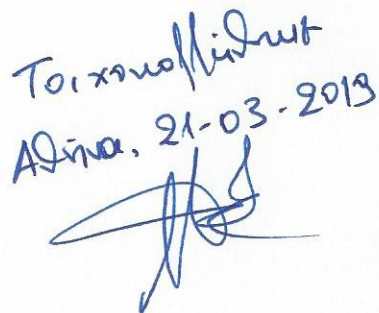 Τοιχοκολλήθηκε
Αθήνα, 21-03-2019